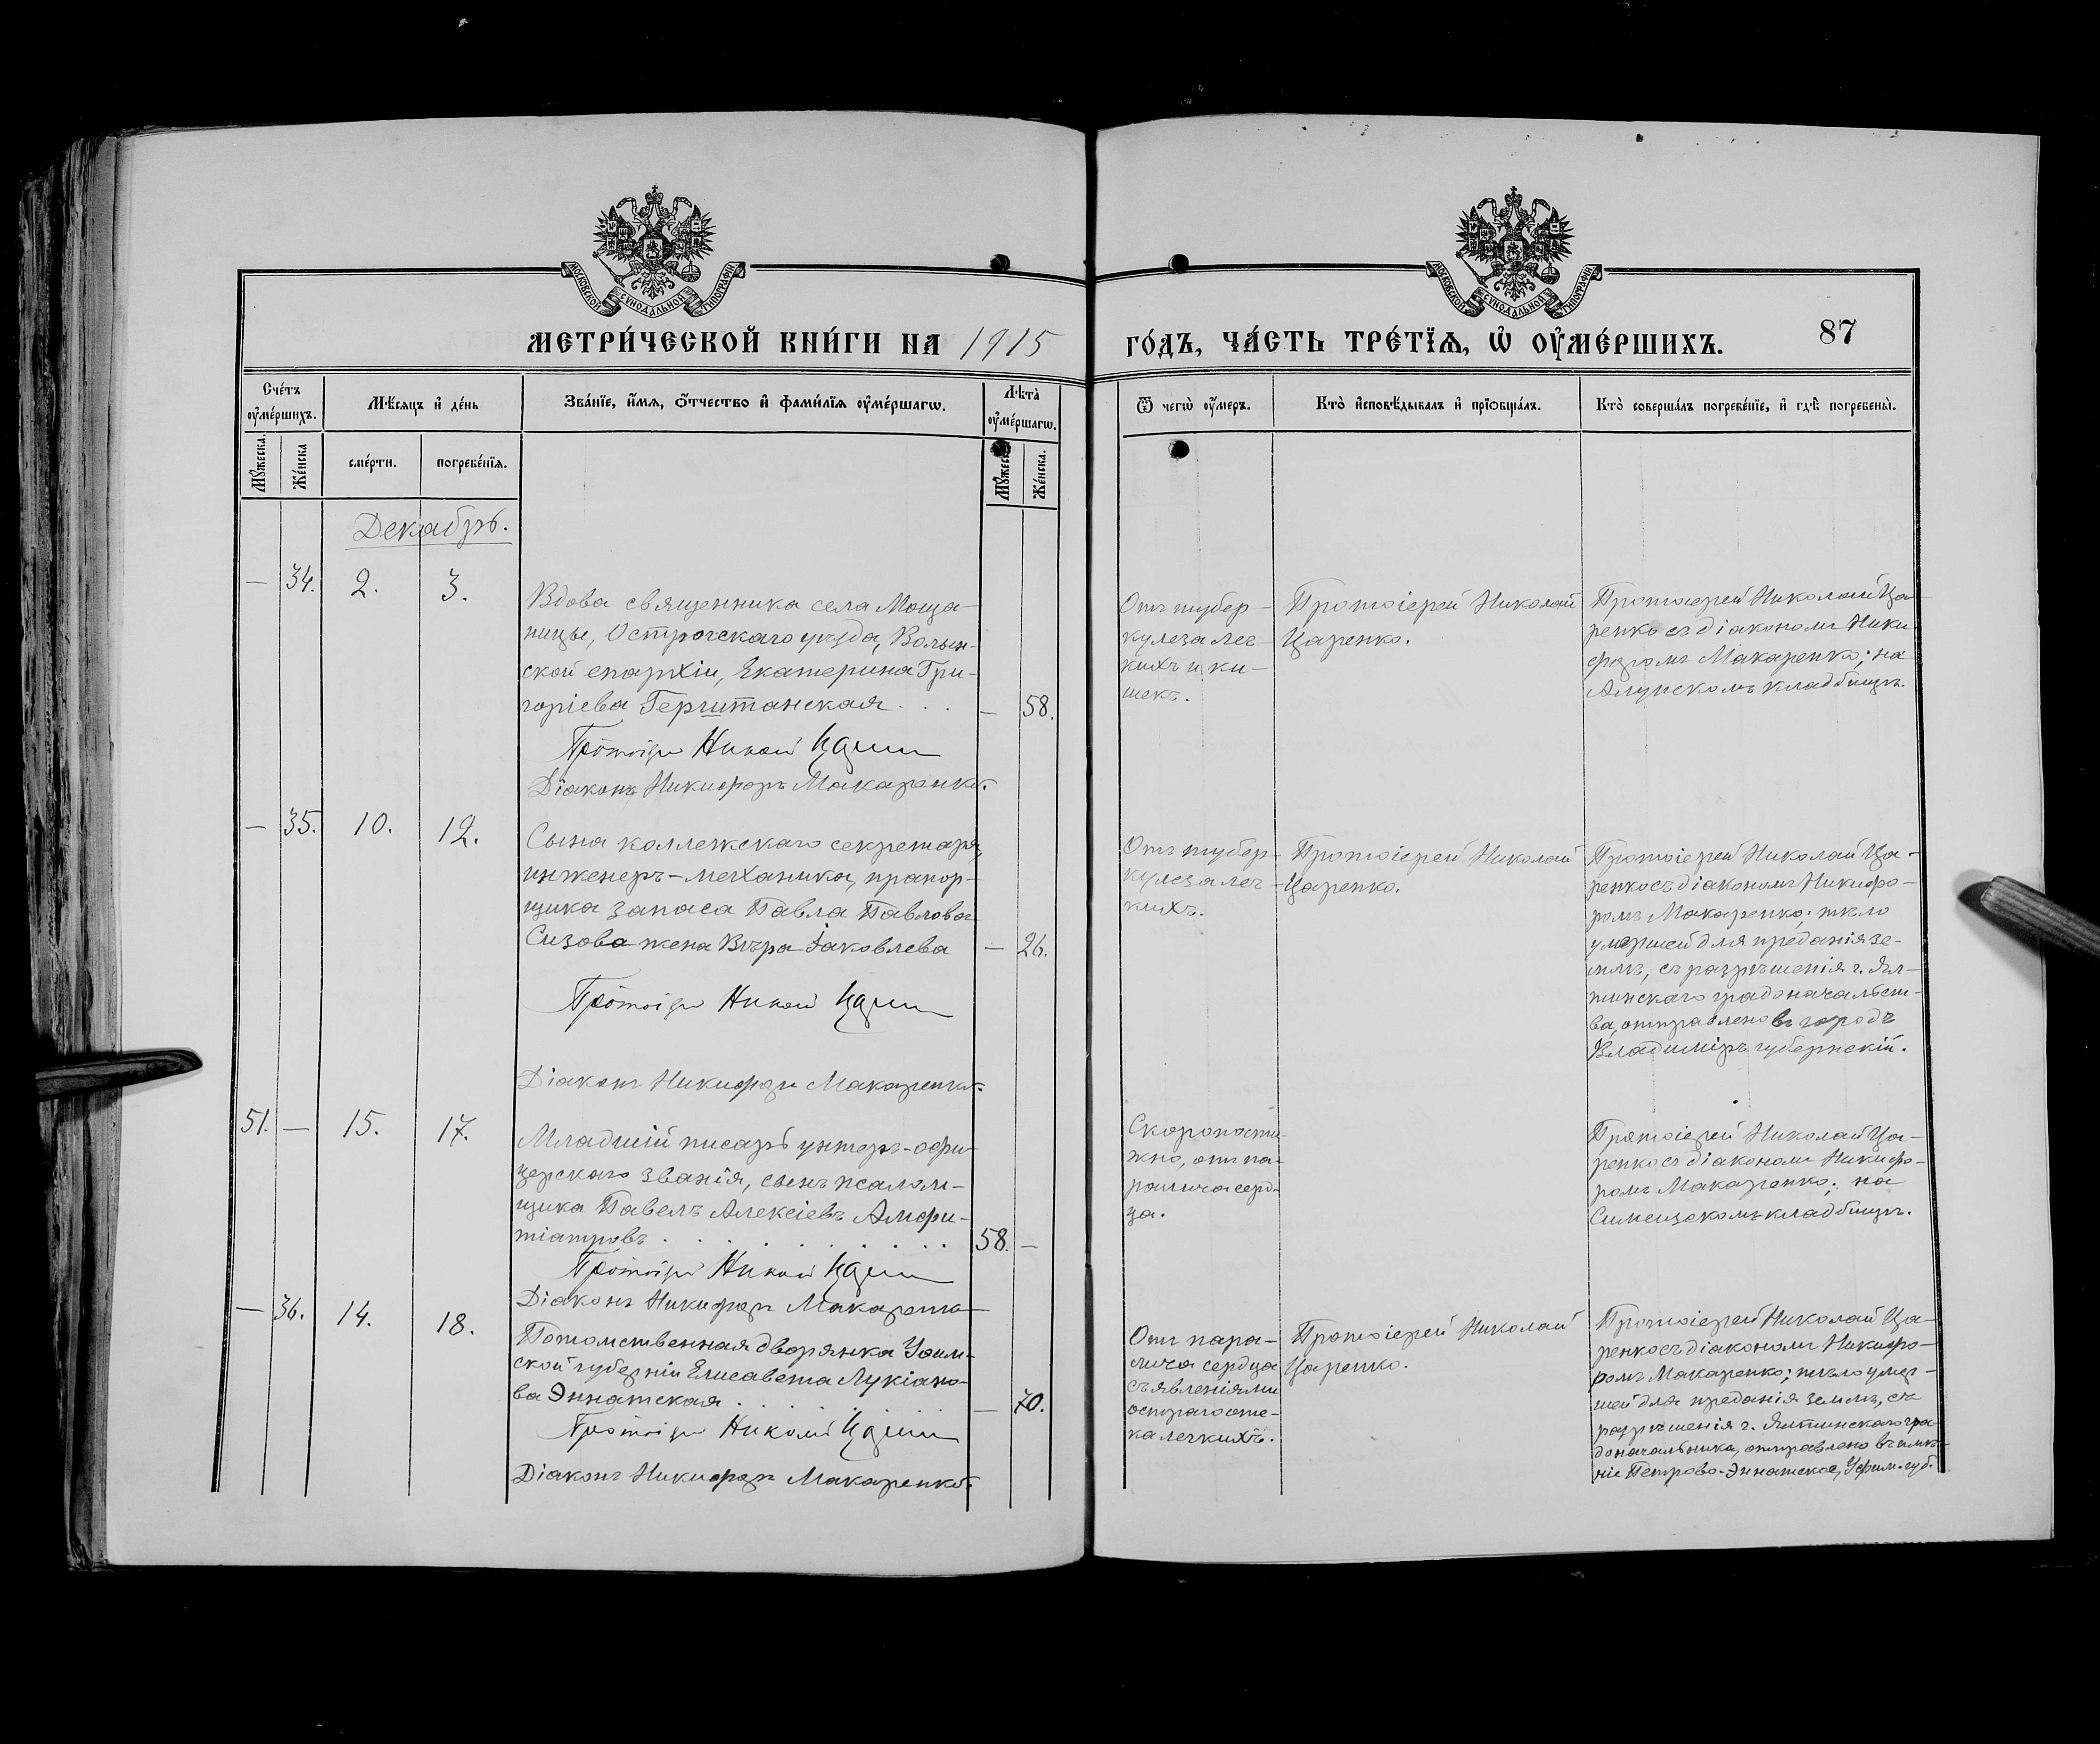 МОСКОВСКОЙ СѴНОДАЛЬНОЙ ТИПОГРАФІИ
МОСКОВСКОЙ СѴНОДАЛЬНОЙ ТИПОГРАФІИ
МЕТРИ́ЧЕСКОЙ КНИ́ГИ НА 1915
ГО́ДЪ, ЧА́СТЬ ТРЕ́ТЇѦ, Ѡ҆ ОУ҆МЕ́РШИХЪ.
87
Сче́тъ
оу҆ме́ршихъ.
Мѣ́сяцъ и҆ де́нь
Зва́нїе, и҆́мѧ, ѻ҆́тчество и҆ фами́лїѧ оу҆ме́ршагѡ.
Лѣ́та
оу҆ме́ршагѡ.
Ѿ чегѡ̀ оу҆́меръ.
Кто̀ и҆сповѣ́дывалъ и҆ прїѡбща́лъ.
Кто̀ соверша́лъ погребе́нїе, и҆ гдѣ̀ погребены̀.
Мꙋ́жеска.
Же́нска
сме́рти.
погребе́нїѧ.
Мꙋ́жеска
Же́нска.
Декабрь.
— 34. 2. 3.
Вдова священника села Моща-
ницы, Острогскаго уѣзда, Волын-
ской епархіи, Екатерина Гри-
горіева Герштанская . . . — 58.
Протоіерей Николай Царенко
Діаконъ Никифоръ Макаренко.
Отъ тубер-
кулеза лег
кихъ и ки-
шекъ.
Протоіерей Николай
Царенко.
Протоіерей Николай Ца-
ренко съ діакономъ Ники
форомъ Макаренко; на
Алупскомъ кладбищѣ.
— 35. 10. 12.
Сына коллежскаго секретаря,
инженеръ-механика, прапор-
щика запаса Павла Павлова
Сизова жена Вѣра Іаковлева — 26.
Протоіерей Николай Царенко
Діаконъ Никифоръ Макаренко.
Отъ тубер-
кулеза лег-
кихъ.
Протоіерей Николай
Царенко.
Протоіерей Николай Ца-
ренко съ діакономъ Никифо-
ромъ Макаренко; тѣло
умершей для преданія зе-
млѣ, съ разрѣшенія г. Ял-
тинскаго градоначальст-
ва, отправлено въ городъ
Владиміръ губернскій.
51. — 15. 17.
Младшій писарь унтеръ-офи
церскаго званія, сынъ псалом-
щика Павелъ Алексіевъ Амфи-
тіатровъ . . . . . . . . 58. —
Протоіерей Николай Царенко
Діаконъ Никифоръ Макаренко
Скоропости-
жно, отъ па-
ралича серд-
ца.
Протоіерей Николай Ца-
ренко съ діакономъ Никифо-
ромъ Макаренко; на
Симеизскомъ кладбищѣ.
— 36. 14. 18.
Потомственная дворянка Уфим-
ской губерніи Елисавета Лукіано-
ва Эннатская . . . . . . — 70.
Протоіерей Николай Царенко
Діаконъ Никифоръ Макаренко.
Отъ пара-
лича сердца
съ явленіями
остраго оте-
ка легкихъ.
Протоіерей Николай
Царенко.
Протоіерей Николай Ца-
ренко съ діакономъ Никифо-
ромъ Макаренко; тѣло умер-
шей для преданія землѣ, съ
разрѣшенія г. Ялтинскаго гра-
доначальника, отправлено въ имѣ-
ніе Петрово-Эннатское, Уфим. губ.